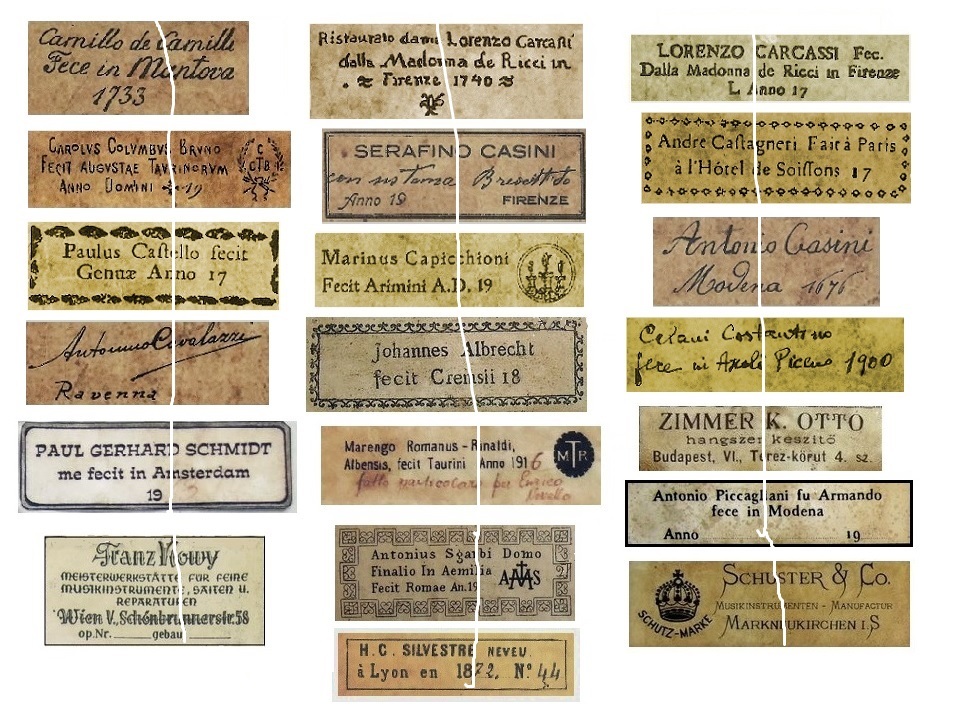 Camillo de Camilli
Fece in Mantova
1733
CAROLVS COLVMBVS BRVNO
FECIT AVGVSTAE TAVRINORVM
ANNO DOMINI 19
C
CTB
Paulus Castello fecit
Genuæ Anno 17
Antonino Cavalazzi
Ravenna
PAUL GERHARD SCHMIDT
me fecit in Amsterdam
19
Franz Nowy
MEISTERWERKSTÄTTE FÜR FEINE
MUSIKINSTRUMENTE, SAITEN U.
REPARATUREN
Wien V., Schönbrunnerstr. 58
op. Nr. gebaut
Ristaurato da me Lorenzo Carcaſi
dalla Madonna de Ricci in
Firenze 1740
SERAFINO CASINI
con sistema Brevettato
Anno 19 FIRENZE
Marinus Capicchioni
Fecit Arimini A.D. 19
Johannes Albrecht
fecit Cremsii 18
Marengo Romanus - Rinaldi,
Albensis, fecit Taurini Anno 1916
fatto particolare per Enrico
MTR
Antonius Sgarbi Domo
Finalio In Aemilia
Fecit Romae An. 19
H.C. SILVESTRE NEVEU
à Lyon en 1872. No. 44
LORENZO CARCASSI Fec.
Dalla Madonna de Ricci in Firenze
L Anno 17
Andre Caſtagneri Fait à Paris
à l'Hôtel de Soiſſons 17
Antonio Casini
Modena 1676
Celani Costantino
fece in Ascoli Piceno 1900
ZIMMER K. OTTÓ
hangszer készitő
Budapest, VI., Terez-körut 4. sz.
Antonio Piccagliani fu Armando
fece in Modena
Anno 19
SCHUTZ-MARKE
SCHUSTER & CO.
MUSIKINSTRUMENTEN - MANUFACTUR
MARKNEUKIRCHEN I.S